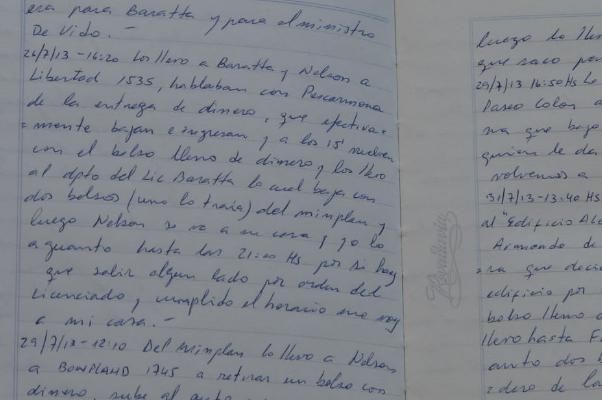 era para Baratta y para el ministro
De Vido. -
26/7/13 - 16:20 Los llevo a Baratta y Nelson a
Libertad 1535, hablaban con Pescarmona
de la entrega de dinero, que efectiva=
=mente bajan e ingresan y a los 15' vuelven
con el bolso lleno de dinero y los llevo
al dpto del Lic Baratta lo cual baja con
dos bolsos (uno lo traía) del minplan y
luego Nelson se va a su casa y yo lo
aguanto hasta las 21:00 Hs por si hay
que salir algun lado por orden del
Licenciado, cumplido el horario me voy
a mi casa. -
29/7/13 - 12:10 Del minplan lo llevo a Nelson
a BONPLAND 1745 a retirar un bolso con
dinero, sube al auto
luego lo llev
que saco par
29/7/13 16:50 Hs Lo
Paseo Colon a
ra que bajo
quien le da
volvemos a
31/7/13 - 13:40 HS
al "Edificio Al
Armando de
=ra que deci
edificio por
bolso lleno d
llevo hasta F
auto dos b
=dero de la
Rivadavia